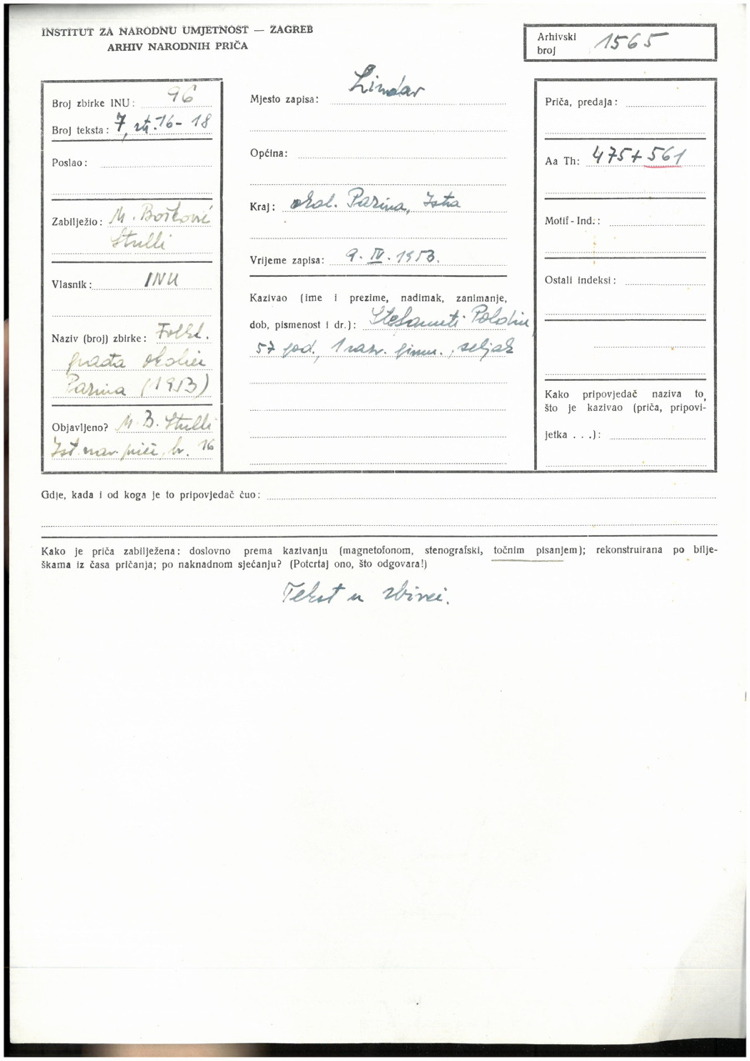 INSTITUT ZA NARODNU UMJETNOST — ZAGREB
ARHIV NARODNIH PRIČA
Arhivski
broj 1565
Broj zbirke INU: 96
Broj teksta: 7, str. 16-18
Poslao:
Zabilježio: M. Bošković
Stulli
Vlasnik: INU
Naziv (broj) zbirke: Folkl.
građa okolice
Pazina (1953)
Objavljeno? M. B. Stulli
Ist. nar. priče, br. 16
Mjesto zapisa: Lindar
Općina:
Kraj: okol. Pazina, Istra
Vrijeme zapisa: 9. IV. 1953.
Kazivao (ime i prezime, nadimak, zanimanje,
dob, pismenost i dr.): Stefanuti
57 god., 1 razr. gimn., seljak
Priča, predaja:
Aa Th: 475 + 561
Motif - Ind.:
Ostali indeksi:
Kako pripovjedač naziva to,
što je kazivao (priča, pripovi-
jetka . . .):
Gdje, kada i od koga je to pripovjedač čuo:
Kako je priča zabilježena: doslovno prema kazivanju (magnetofonom, stenografski, točnim pisanjem); rekonstruirana po bilje-
škama iz časa pričanja; po naknadnom sjećanju? (Potcrtaj ono, što odgovara!)
Tekst u zbirci.